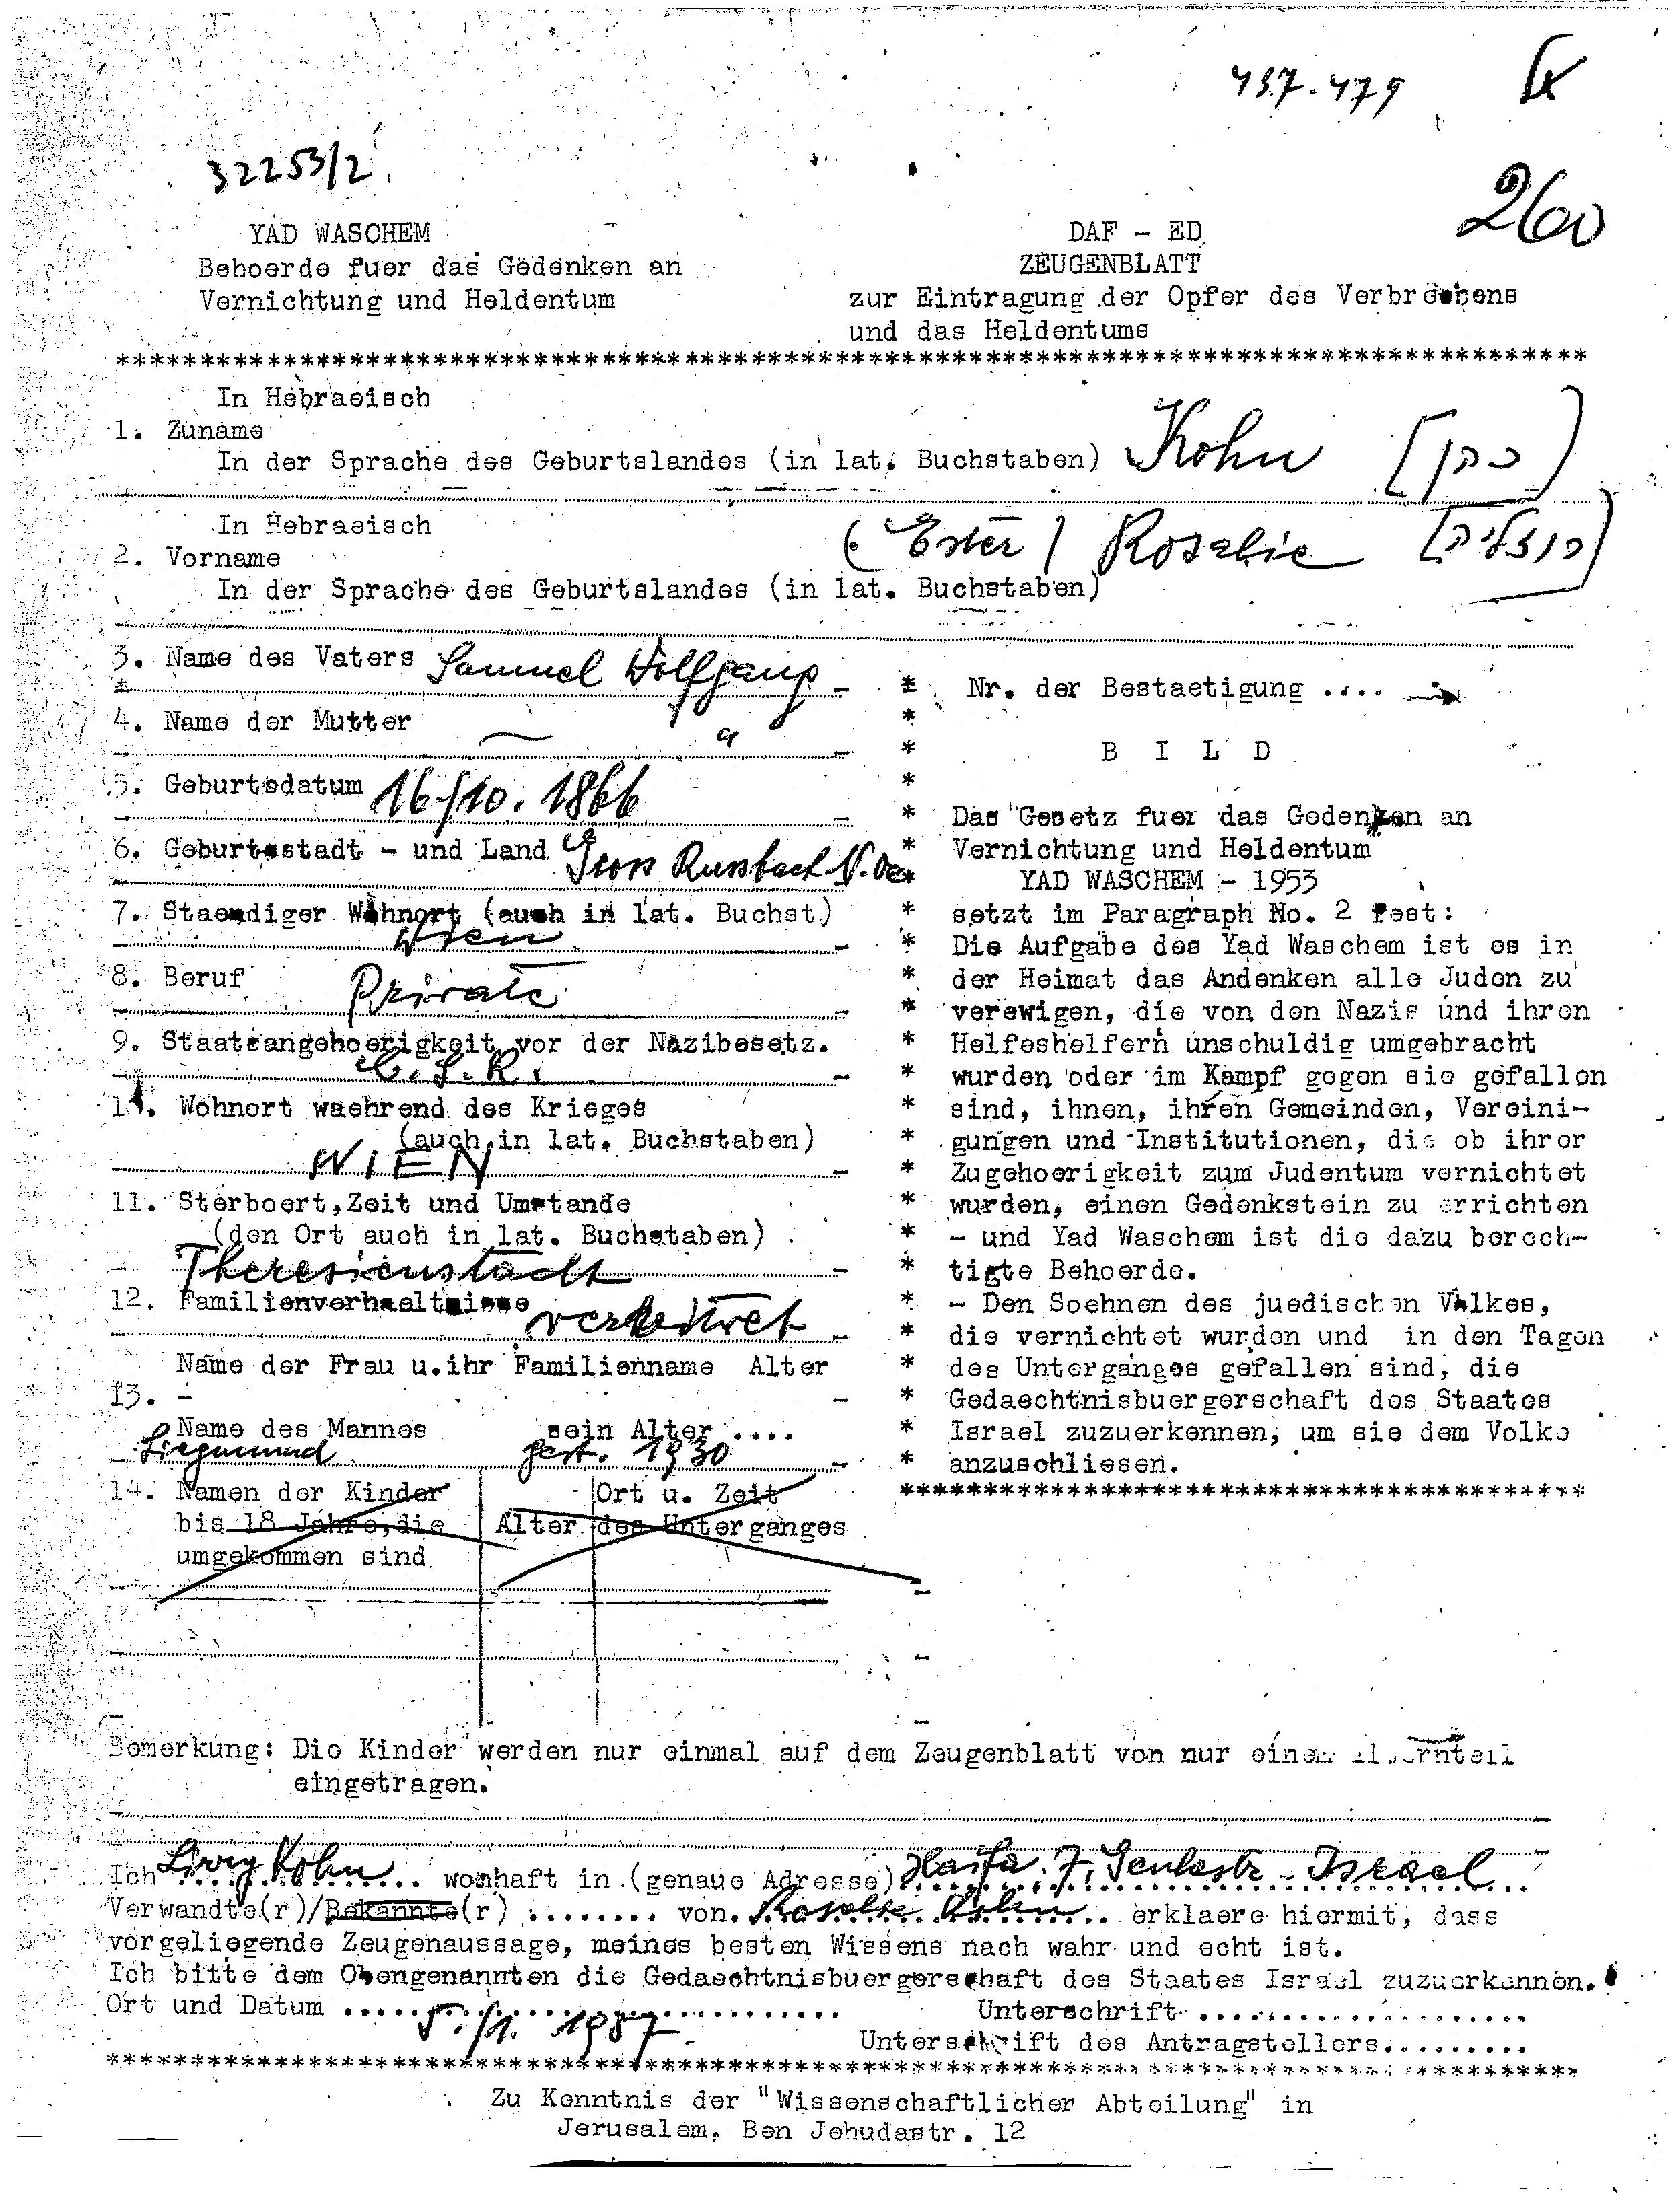 437.479
32253/2
260
YAD WASCHEM
Behoerde fuer das Gedenken an
Vernichtung und Heldentum
DAF - ED
ZEUGENBLATT
zur Eintragung der Opfer des Verbrechens
und das Heldentums
In Hebraeisch
1. Zuname
In der Sprache des Geburtslandes (in lat. Buchstaben) Kohn [כהן]
In Hebraeisch
(Ester) Rosalie [רוזליה]
2. Vorname
In der Sprache des Geburtslandes (in lat. Buchstaben)
3. Name des Vaters Samuel Wolfgang
4. Name der Mutter —
5. Geburtsdatum 16./10. 1866
6. Geburtsstadt - und Land Gross Russbach N.Oe
7. Staendiger Wohnort (auch in lat. Buchst.)
Wien
8. Beruf Private
9. Staatsangehoerigkeit vor der Nazibesetz.
C.S.R.
11. Wohnort waehrend des Krieges
(auch in lat. Buchstaben)
WIEN
11. Sterboert, Zeit und Umstande
(den Ort auch in lat. Buchstaben)
Theresienstadt
12. Familienverhaeltnisse verwitwet
Name der Frau u.ihr Familienname Alter
13. -
Name des Mannes sein Alter ....
Siegmund gest. 1930
14. Namen der Kinder
bis 18 Jahre, die
umgekommen sind
Alter
Ort u. Zeit
des Unterganges
Nr. der Bestaetigung ....
B I L D
Das Gesetz fuer das Gedenken an
Vernichtung und Heldentum
YAD WASCHEM - 1953
setzt im Paragraph No. 2 fest:
Die Aufgabe des Yad Waschem ist es in
der Heimat das Andenken alle Juden zu
verewigen, die von den Nazis und ihren
Helfeshelfern unschuldig umgebracht
wurden oder im Kampf gegen sie gefallen
sind, ihnen, ihren Gemeinden, Vereini-
gungen und Institutionen, die ob ihrer
Zugehoerigkeit zum Judentum vernichtet
wurden, einen Gedenkstein zu errichten
- und Yad Waschem ist die dazu berech-
tigte Behoerde.
- Den Soehnen des juedischen Volkes,
die vernichtet wurden und in den Tagen
des Unterganges gefallen sind, die
Gedaechtnisbuergerschaft des Staates
Israel zuzuerkennen, um sie dem Volke
anzuschliesen.
Bemerkung: Die Kinder werden nur einmal auf dem Zeugenblatt von nur einem Elternteil
eingetragen.
Ich Livry Kohn wohnhaft in (genaue Adresse) Haifa. 7, Israel
Verwandte(r)/Bekannte(r) ........ von Rosalie Kohn erklaere hiermit, dass
vorgeliegende Zeugenaussage, meines besten Wissens nach wahr und echt ist.
Ich bitte dem Obengenannten die Gedaechtnisbuergerschaft des Staates Israel zuzuerkennen.
Ort und Datum 5./1. 1987 Unterschrift
Unterschrift des Antragstellers
Zu Kenntnis der "Wissenschaftlicher Abteilung" in
Jerusalem, Ben Jehudastr. 12